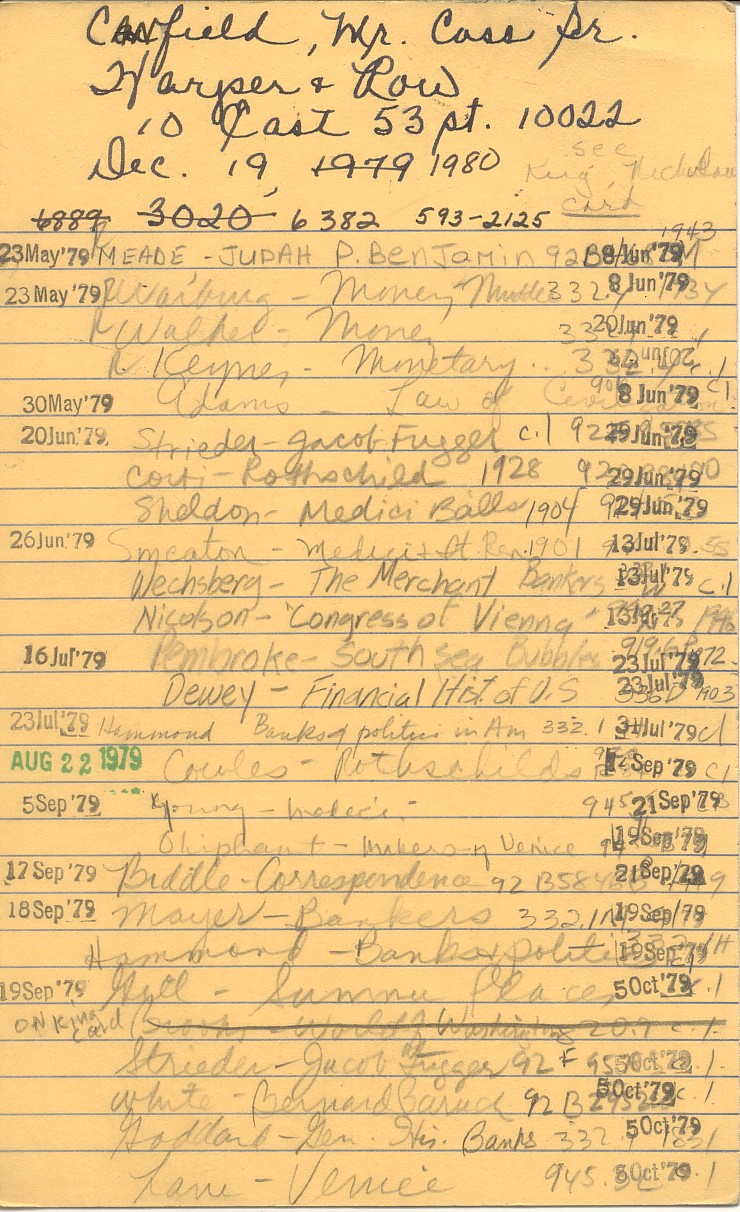 Canfield, Mr. Cass Sr.
Harper & Row
10 East 53 st. 10022
Dec. 19, 1979 1980
see
King, Nicholas
card
6889 3020 6382 593-2125
1943
23 May '79 MEADE - JUDAH P. BenJamin 92B 8 Jun '79
23 May '79 Warburg - Money Muddle 332.4 8 Jun '79 1934
Walker - Money 20 Jun '79
Keynes - Monetary .. 332.4 20 Jun '79 c.1
30 May '79 Adams - Law of Civilization 901 8 Jun '79 c1
20 Jun '79 Strieder - Jacob Fugger c.1 92 29 Jun '79
Corti - Rothschild 1928 92 29 Jun '79
Sheldon - Medici Balls 1904 29 Jun '79
26 Jun '79 Smeaton - Medici & It Ren. 1901 13 Jul '79
Wechsberg - The Merchant Bankers 13 Jul '79 c.1
Nicolson - "Congress of Vienna" 13 Jul '79
16 Jul '79 Pembroke - South Sea Bubbles 23 Jul '79
Dewey - Financial Hist. of U.S 23 Jul '79 1903
23 Jul '79 Hammond Banks & politics in Am 332.1 31 Jul '79 c1
AUG 22 1979 Cowles - Rothschilds 12 Sep '79 c1
5 Sep '79 Young - Medici - 945 21 Sep '79
Oliphant - Makers of Venice 19 Sep '79
17 Sep '79 Biddle - Correspondence 92 B5846B 21 Sep '79
18 Sep '79 Mayer - Bankers 332.1M 19 Sep '79
Hammond - Banks & politics 19 Sep '79
19 Sep '79 Gill - Summer Places 5 Oct '79 c.1
ON King card Brooks - World of Washington 20.9 c.1
Strieder - Jacob Fugger 92 F 5 Oct '79 c.1
White - Bernard Baruch 92 B 5 Oct '79 c.1
Goddard - Gen. His. Banks 332.1 5 Oct '79 1831
Lane - Venice 945.3 8 Oct '79 c.1